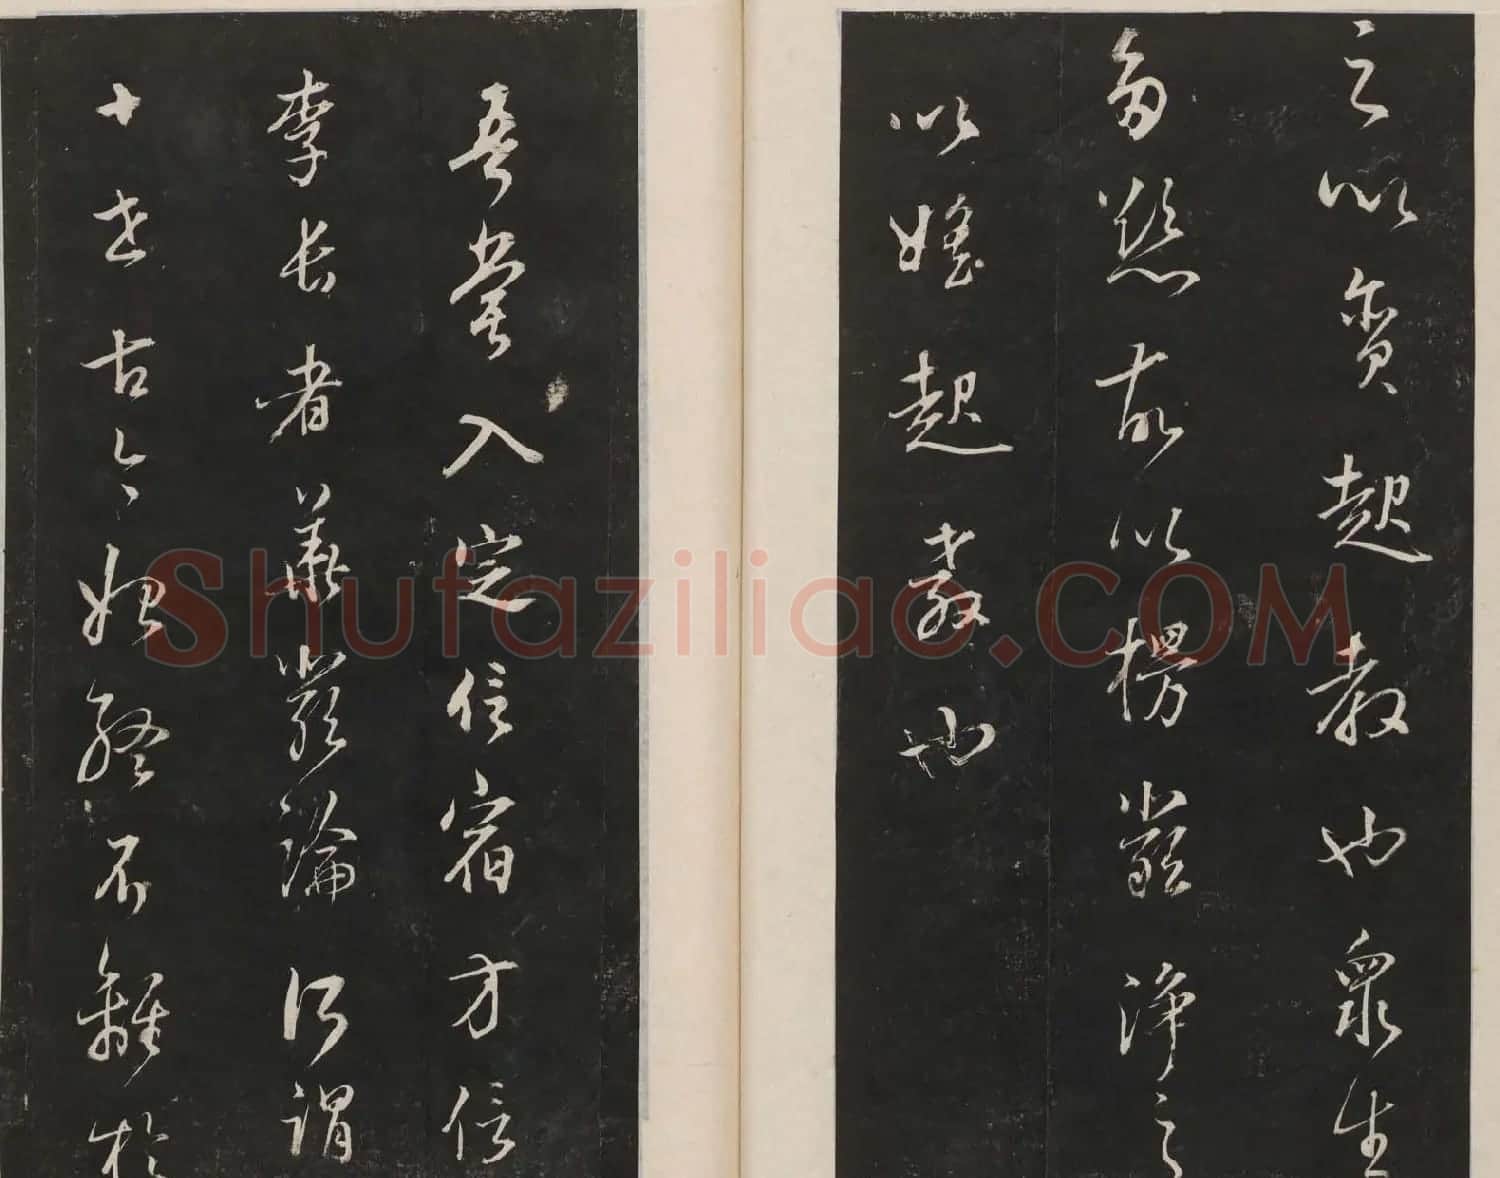 之以貪起教也衆生
多慾故以楞嚴淨之
以婬起教也
吾嘗入定信宿方信
李長者華嚴論所謂
十世古今始終不離於
Shufaziliao.COM